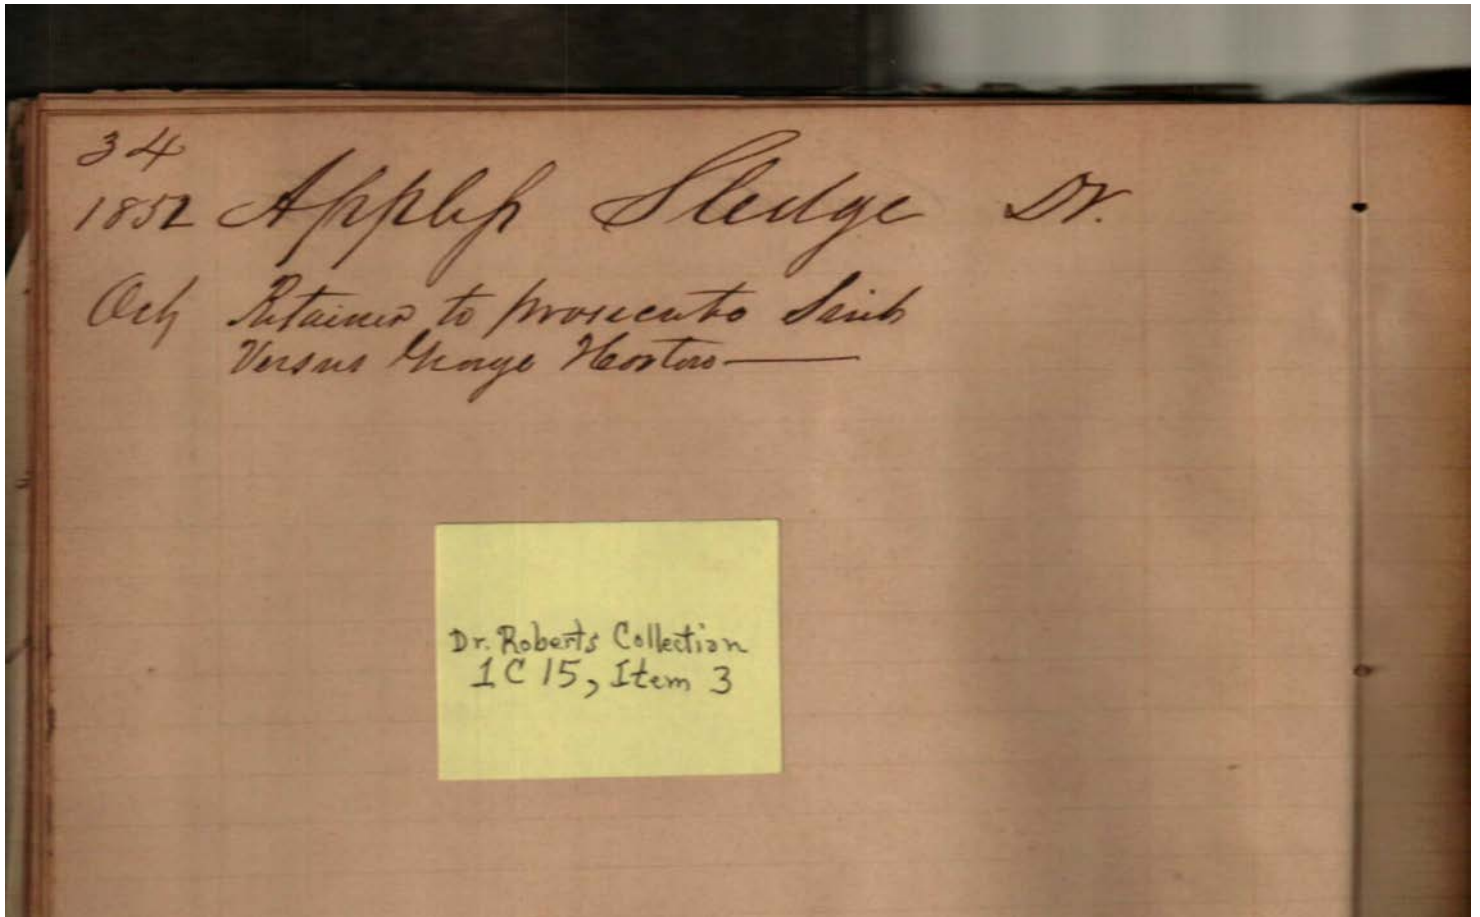 34
1852 Sledge Dr.
Oct Retainer to prosecute Suit
Versus George Horton
Dr. Roberts Collection
1C15, Item 3